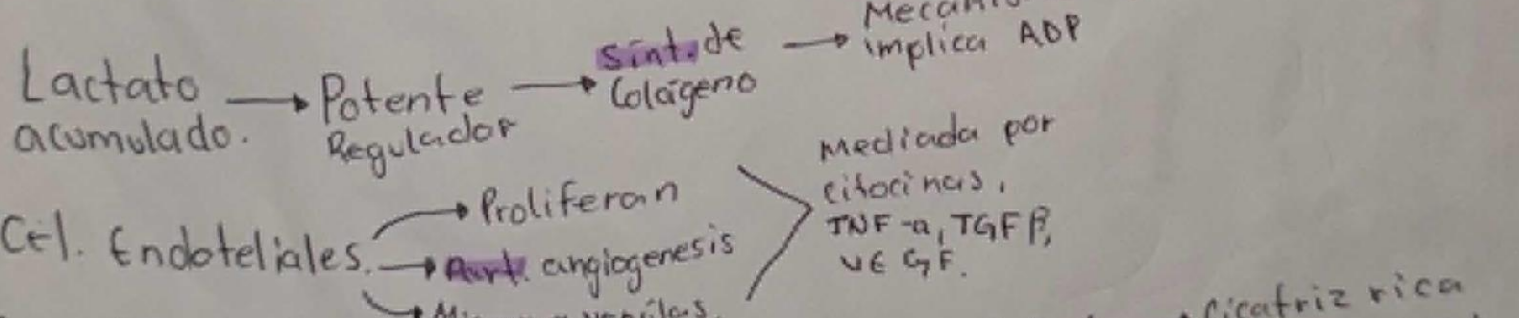 Lactato acumulado. → Potente Regulador → sínt. de Colágeno → implica ADP
Cél. Endoteliales. → Proliferan
→ Part. angiogenesis
Mediada por
citocinas,
TNF-α, TGF β,
VEGF.
cicatriz rica